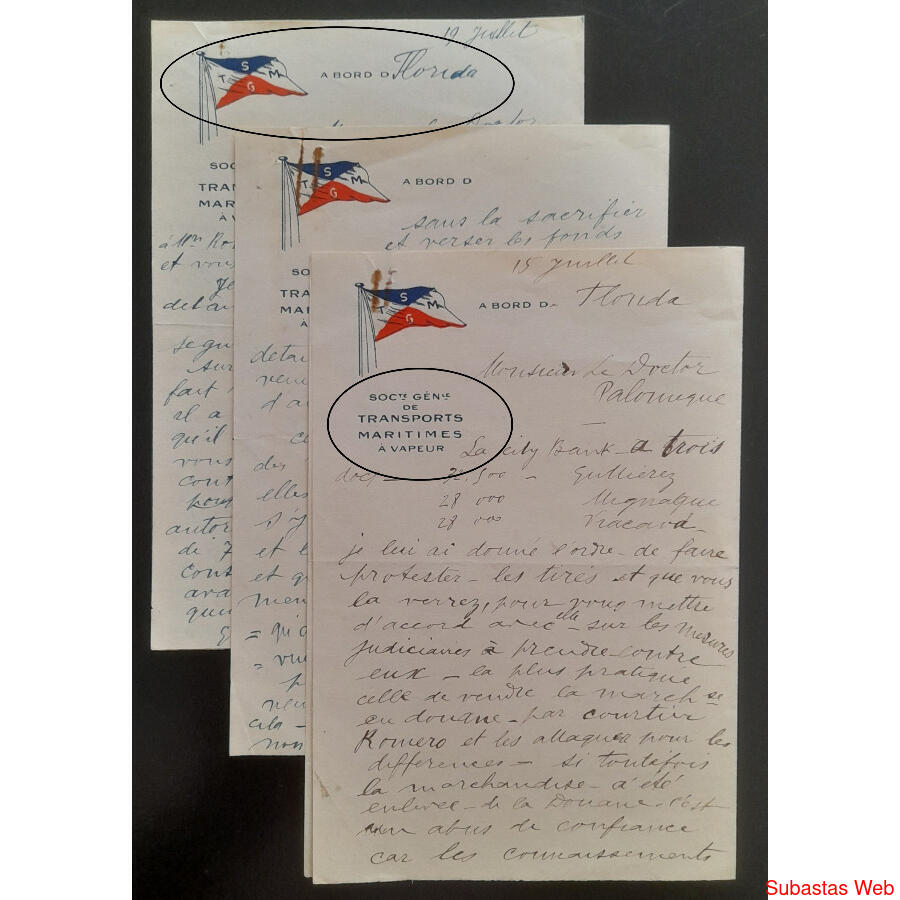 19 Juillet
S
T M
G
A BORD D Florida
SOC
TRAN
MAR
À V
à Mr Ro
et vous
Je
detai
segu
sur
fait
il a
qu'il
vous
cont
pour
autor
de 7
cont
ava
que
S
T M
G
A BORD D
sans la sacrifier
et verser les fonds
SO
TRA
MA
À
detai
ven
d'a
des
elles
s'y
et l
et q
men
= qu'a
= vu
p
ven
cela -
non
15 Juillet
S
T M
G
A BORD D Florida
SOCTE GÉNLE
DE
TRANSPORTS
MARITIMES
À VAPEUR
Monsieur Le Doctor
Palomeque
La City Bank - a trois
doct - 500 - Guttierez
28 000 Mignaque
28 000 Viacava
je lui ai donné l'ordre - de faire
protester - les tirés et que vous
la verrez, pour vous mettre
d'accord avec elle - sur les mesures
judiciaires à prendre contre
eux - la plus pratique
celle de vendre la march se
en douane - par courtier
Romero et les attaquer pour les
differences - si toutefois
la marchandise - a été
enlevée - de la Douane c'est
un abus de confiance
car les connaissements
Subastas Web